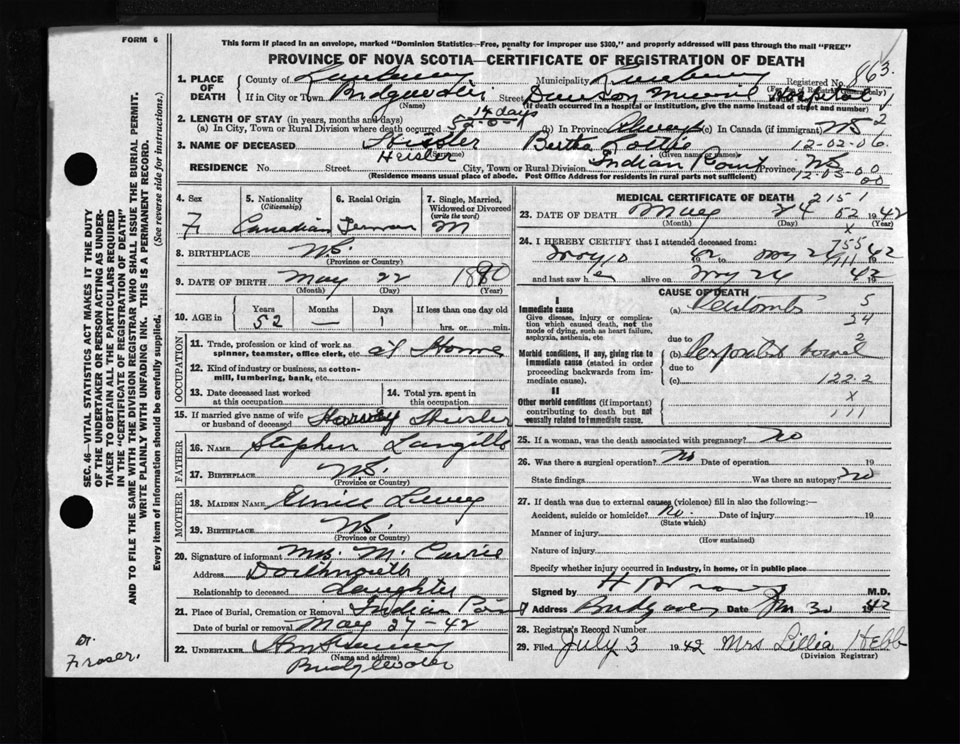 FORM 6
This form if placed in an envelope, marked "Dominion Statistics—Free, penalty for improper use $300," and properly addressed will pass through the mail "FREE"
PROVINCE OF NOVA SCOTIA—CERTIFICATE OF REGISTRATION OF DEATH
863.
1. PLACE OF DEATH
County of Lunenburg Municipality Lunenburg Registered No.
If in City or Town Bridgewater Street Dawson Memorial Hospital
(Name) (If death occurred in a hospital or institution, give the name instead of street and number)
2. LENGTH OF STAY (in years, months and days) 14 days
(a) In City, Town or Rural Division where death occurred (b) In Province Always (c) In Canada (if immigrant) NS 2
3. NAME OF DECEASED Heisler Bertha 12-02-06
Heisler (Surname) (Given name or names)
RESIDENCE No. Street City, Town or Rural Division Indian Point Province NS
(Residence means usual place of abode. Post Office Address for residents in rural parts not sufficient) 12-03-00
00
4. Sex
F
5. Nationality (Citizenship)
Canadian
6. Racial Origin
German
7. Single, Married, Widowed or Divorced (write the word)
M
8. BIRTHPLACE NS.
(Province or Country)
9. DATE OF BIRTH May 22 1890
(Month) (Day) (Year)
10. AGE in Years Months Days If less than one day old
52 — 1 hrs. or min.
OCCUPATION
11. Trade, profession or kind of work as spinner, teamster, office clerk, etc. at Home
12. Kind of industry or business, as cotton-mill, lumbering, bank, etc.
13. Date deceased last worked at this occupation
14. Total yrs. spent in this occupation
15. If married give name of wife or husband of deceased Harvey Heisler
FATHER
16. NAME Stephen Langille
17. BIRTHPLACE NS.
(Province or Country)
MOTHER
18. MAIDEN NAME Eunice
19. BIRTHPLACE NS.
(Province or Country)
20. Signature of informant Mrs. M. Currie
Address Dartmouth
Relationship to deceased daughter
21. Place of Burial, Cremation or Removal Indian Point
Date of burial or removal May 27-42
22. UNDERTAKER
(Name and address)
Bridgewater
MEDICAL CERTIFICATE OF DEATH 2151
23. DATE OF DEATH May 24 52 1942
(Month) (Day) (Year)
x
24. I HEREBY CERTIFY that I attended deceased from:
755
May 10 19 42 to May 24 1942
and last saw h e alive on May 24 42
CAUSE OF DEATH
I
Immediate cause
Give disease, injury or complication which caused death, not the mode of dying, such as heart failure, asphyxia, asthenia, etc
(a) Peritonitis 5
54
due to
Morbid conditions, if any, giving rise to immediate cause (stated in order proceeding backwards from immediate cause).
(b) perforated bowel
due to
(c) 122.2
II
Other morbid conditions (if important) contributing to death but not causally related to immediate cause.
x
111
25. If a woman, was the death associated with pregnancy? no
26. Was there a surgical operation? No Date of operation 19
State findings Was there an autopsy? no
27. If death was due to external causes (violence) fill in also the following:—
Accident, suicide or homicide? No. Date of injury 19
(State which)
Manner of injury
(How sustained)
Nature of injury
Specify whether injury occurred in industry, in home, or in public place
Signed by M.D.
Address Bridgewater Date 30 1942
28. Registrar's Record Number
29. Filed July 3 1942 Mrs Lillia Hebb
(Division Registrar)
SEC. 46—VITAL STATISTICS ACT MAKES IT THE DUTY
OF THE UNDERTAKER OR PERSON ACTING AS UNDER-
TAKER TO OBTAIN ALL THE PARTICULARS REQUIRED
IN THE "CERTIFICATE OF REGISTRATION OF DEATH"
AND TO FILE THE SAME WITH THE DIVISION REGISTRAR WHO SHALL ISSUE THE BURIAL PERMIT.
WRITE PLAINLY WITH UNFADING INK. THIS IS A PERMANENT RECORD.
Every item of information should be carefully supplied. (See reverse side for instructions.)
Dr.
Fraser.